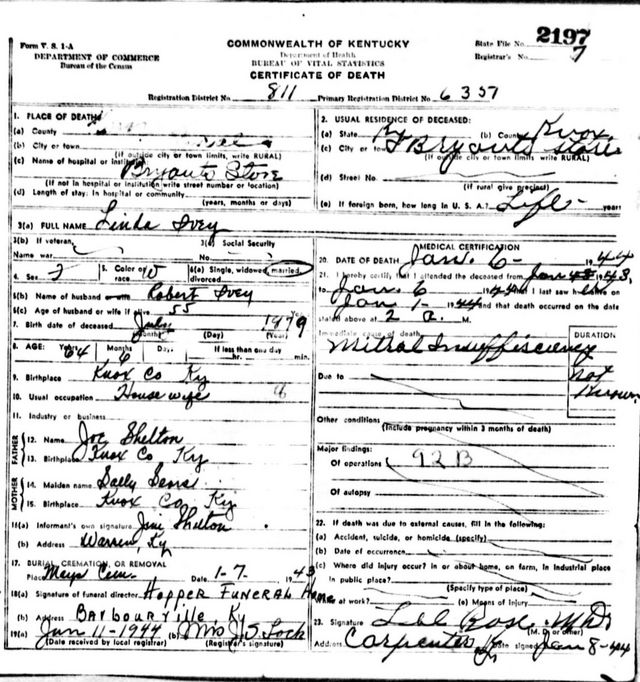 Form V. S. 1-A
DEPARTMENT OF COMMERCE
Bureau of the Census
COMMONWEALTH OF KENTUCKY
Department of Health
BUREAU OF VITAL STATISTICS
CERTIFICATE OF DEATH
State File No. 2197
Registrar's No. 7
Registration District No. 811 Primary Registration District No. 6357
1. PLACE OF DEATH
(a) County
(b) City or town
(If outside city or town limits, write RURAL)
(c) Name of hospital or institution Bryants Store
(If not in hospital or institution write street number or location)
(d) Length of stay: In hospital or community
(years, months or days)
2. USUAL RESIDENCE OF DECEASED:
(a) State Ky (b) County Knox
(c) City or town Bryants Store
(If outside city or town limits write RURAL)
(d) Street No.
(If rural give precinct)
(e) If foreign born, how long in U. S. A.? Life years
3(a) FULL NAME Linda Ivey
3(b) If veteran,
Name war
3(c) Social Security
No.
4. Sex F 5. Color or race W 6(a) Single, widowed, married, divorced
6(b) Name of husband or wife Robert Ivey
6(c) Age of husband or wife if alive 55
7. Birth date of deceased July 1879
(Month) (Day) (Year)
8. AGE: Years 64 Months 6 Days If less than one day
hr. min.
9. Birthplace Knox Co Ky
10. Usual occupation House wife
11. Industry or business
FATHER
12. Name Joe Shelton
13. Birthplace Knox Co Ky
MOTHER
14. Maiden name Sally
15. Birthplace Knox Co, Ky
16(a) Informant's own signature Jim Shelton
(b) Address Warren, Ky
17. BURIAL, CREMATION, OR REMOVAL
Place Mays Cem. Date 1-7. 1943
18(a) Signature of funeral director Hopper Funeral Home
(b) Address Barbourville, Ky
19(a) Jan 11-1944 (b) Mrs J. S. Lock
(Date received by local registrar) (Registrar's signature)
MEDICAL CERTIFICATION
20. DATE OF DEATH Jan. 6- 1944
21. I hereby certify that I attended the deceased from Jan 1943,
to Jan 6 1944 that I last saw her alive on
Jan 1- 1944 and that death occurred on the date
stated above at 2 a. M.
Immediate cause of death
Mitral Insufficiency
DURATION
Not
Known
Due to
Other conditions
(Include pregnancy within 3 months of death)
Major findings:
Of operations 92B
Of autopsy
22. If death was due to external causes, fill in the following:
(a) Accident, suicide, or homicide (specify)
(b) Date of occurrence
(c) Where did injury occur? in or about home, on farm, in industrial place
in public place?
(Specify type of place)
at work? (e) Means of injury
23. Signature Rose M.D.
(M. D. or other)
Carpenter Ky Date signed Jan 8-44